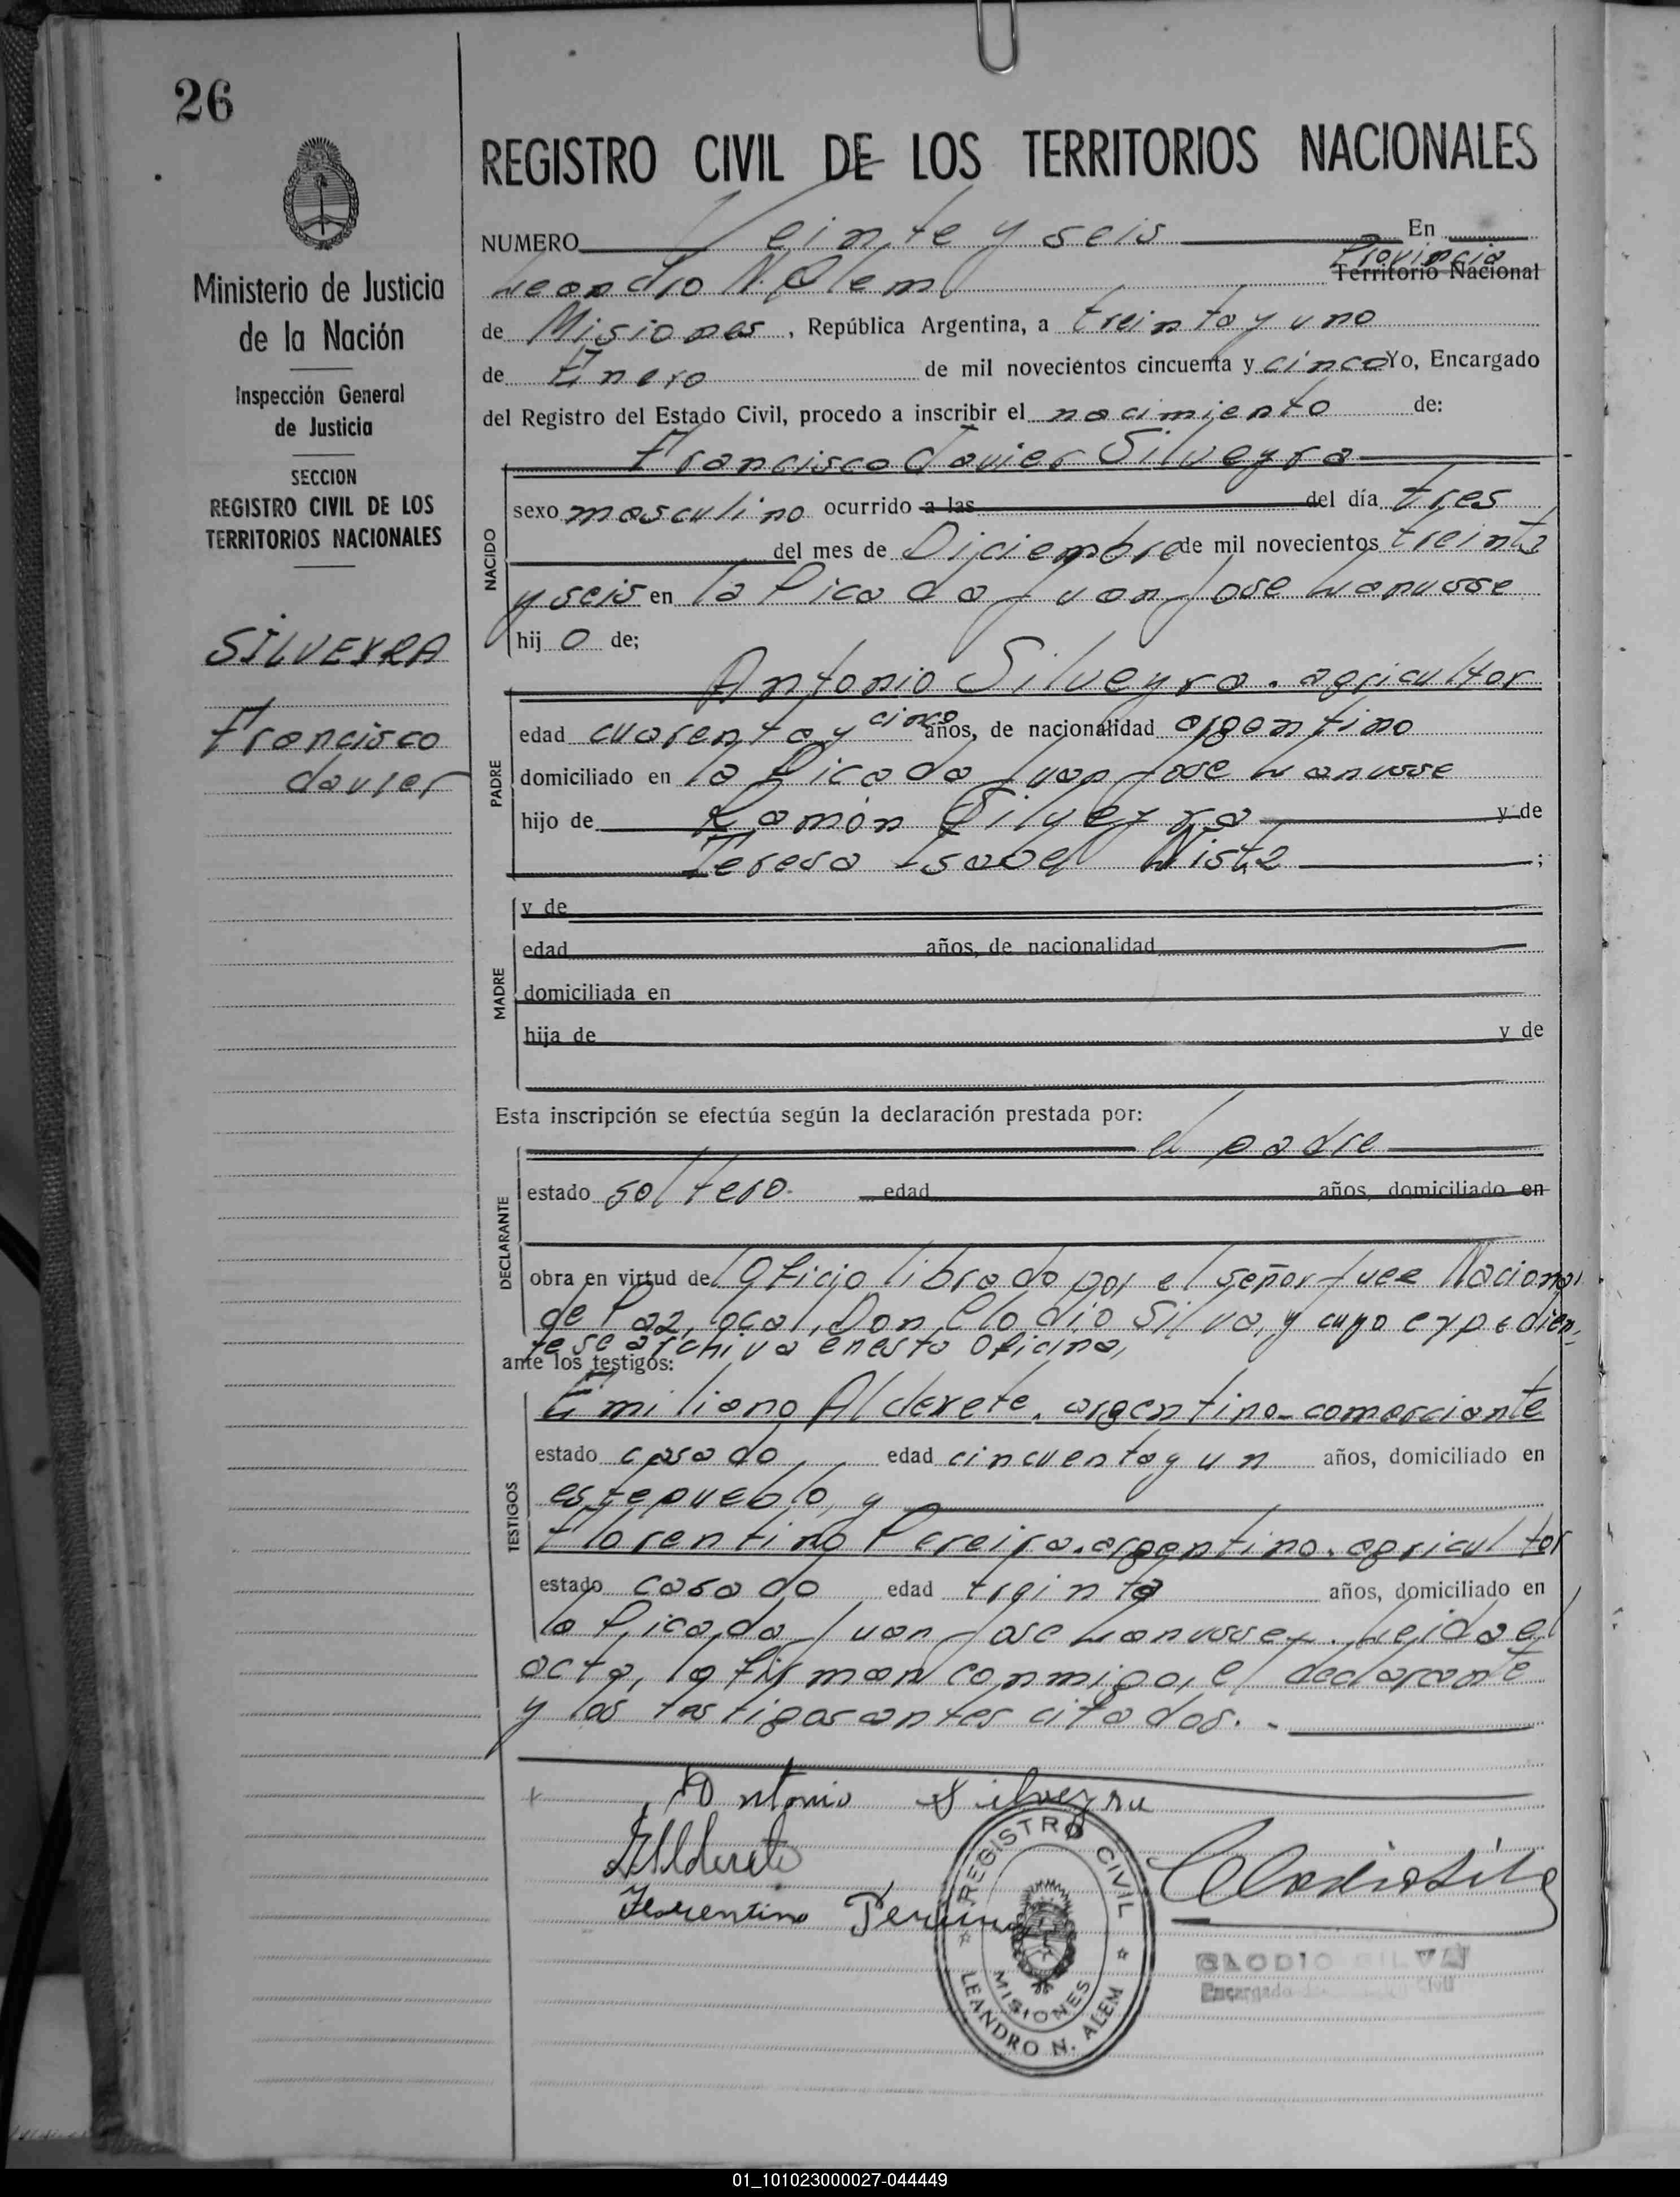 26
Ministerio de Justicia
de la Nación
Inspección General
de Justicia
SECCION
REGISTRO CIVIL DE LOS
TERRITORIOS NACIONALES
SILVEYRA
Francisco
Javier
REGISTRO CIVIL DE LOS TERRITORIOS NACIONALES
NUMERO Veinte y seis En
Provincia
Leandro N. Alem Territorio Nacional
de Misiones, República Argentina, a treinta y uno
de Enero de mil novecientos cincuenta y cinco Yo, Encargado
del Registro del Estado Civil, procedo a inscribir el nacimiento de:
Francisco Javier Silveyra
NACIDO
sexo masculino ocurrido a las del día tres
del mes de Diciembre de mil novecientos treinta
y seis en la Picada Juan Jose Lanusse
hij o de;
PADRE
Antonio Silveyra. agricultor
edad cuarenta y cinco años, de nacionalidad argentino
domiciliado en la Picada Juan Jose Lanusse
hijo de Ramón Silveyra y de
Teresa Isabel ;
MADRE
y de
edad años, de nacionalidad
domiciliada en
hija de y de
Esta inscripción se efectúa según la declaración prestada por:
el padre
DECLARANTE
estado soltero. edad años, domiciliado en
obra en virtud del Oficio librado por el señor Juez Nacional
de Paz, local, Don Clodio Silva, y cuyo expedien-
te se archiva en esta Oficina,
ante los testigos:
TESTIGOS
Emiliano Alderete. argentino-comerciante
estado casado edad cincuenta y un años, domiciliado en
este pueblo, y
Florentino Pereira. argentino. agricultor
estado casado edad treinta años, domiciliado en
la Picada Juan Jose Lanusse. Leida el
acta, la firman conmigo, el declarante
y los testigos antes citados.-
Antonio Silveyra
Florentino Pereira
REGISTRO CIVIL
MISIONES
LEANDRO N. ALEM
CLODIO SILVA
Encargado Civil
01_101023000027-044449